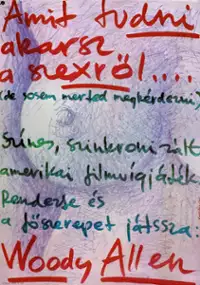 Amit tudni
akarsz
a szexről....
(de sosem merted megkérdezni)
Színes, szinkronizált
amerikai filmvígjáték
Rendezte és
a főszerepet játssza:
Woody Allen